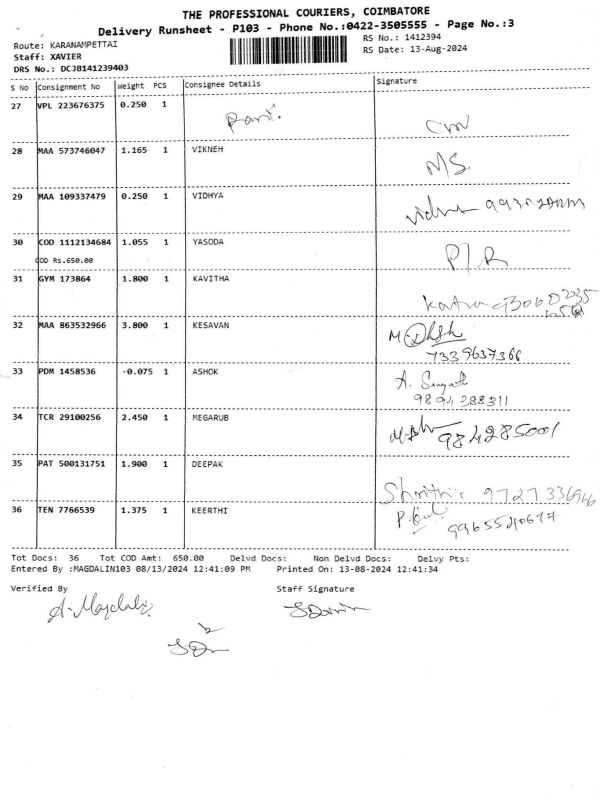 THE PROFESSIONAL COURIERS, COIMBATORE
Delivery Runsheet - P103 - Phone No.:0422-3505555 - Page No.:3
Route: KARANAMPETTAI
RS No.: 1412394
Staff: XAVIER
RS Date: 13-Aug-2024
DRS No.: DCJB141239403
S No Consignment No Weight PCS Consignee Details Signature
27 VPL 223676375 0.250 1
28 MAA 573746047 1.165 1 VIKNEH MS
29 MAA 109337479 0.250 1 VIDHYA
30 COD 1112134684 1.055 1 YASODA
COD Rs.650.00
31 GYM 173864 1.800 1 KAVITHA
32 MAA 863532966 3.800 1 KESAVAN
7339637366
33 PDM 1458536 -0.075 1 ASHOK
9894288311
34 TCR 29100256 2.450 1 MEGARUB 984285001
35 PAT 500131751 1.900 1 DEEPAK
36 TEN 7766539 1.375 1 KEERTHI
Tot Docs: 36 Tot COD Amt: 650.00 Delvd Docs: Non Delvd Docs: Delvy Pts:
Entered By :MAGDALIN103 08/13/2024 12:41:09 PM Printed On: 13-08-2024 12:41:34
Verified By Staff Signature